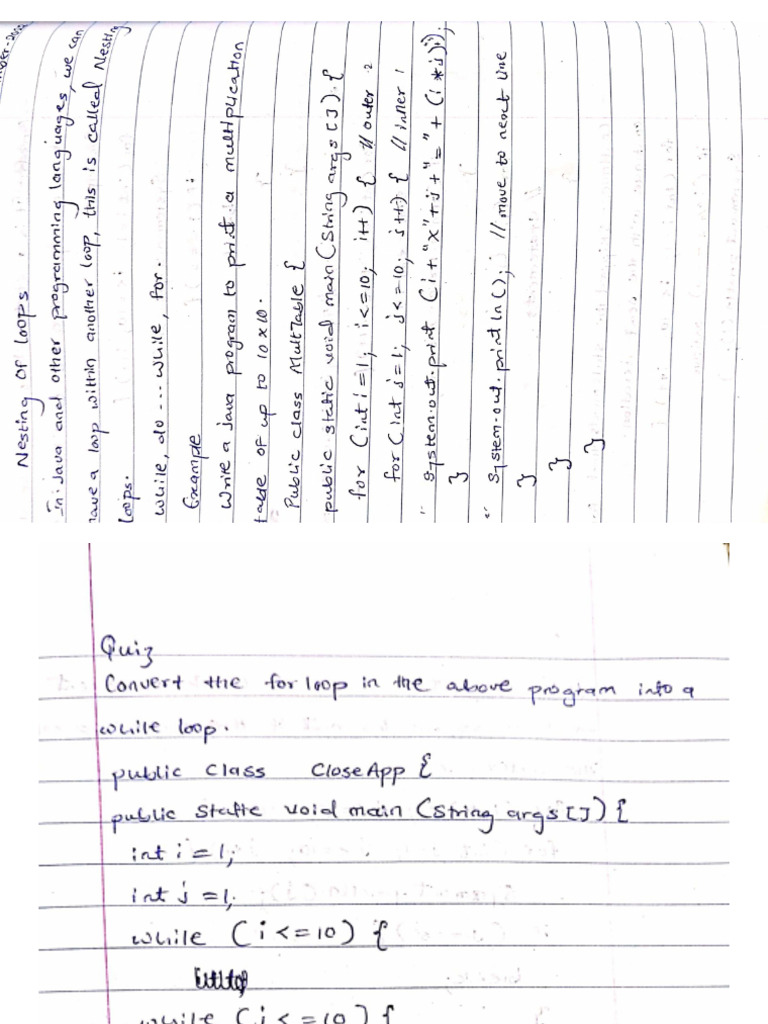 Nesting of loops
In Java and other programming languages, we can
have a loop within another loop, this is called Nesting
loops.
while, do --- while, for.
Example
Write a java program to print a multiplication
table of up to 10x10.
Public class MultTable {
public static void main(String args[]) {
for (int i=1; i<=10; i++) { // outer 2
for (int j=1; j<=10; j++) { // inner 1
System.out.print (i+"x"+j+"="+(i*j));
}
System.out.println(); // move to next line
}
}
}
Quiz
Convert the for loop in the above program into a
while loop.
public class CloseApp {
public static void main (String args[]) {
int i = 1;
int j = 1;
while (i <= 10) {
while (j <= 10) {